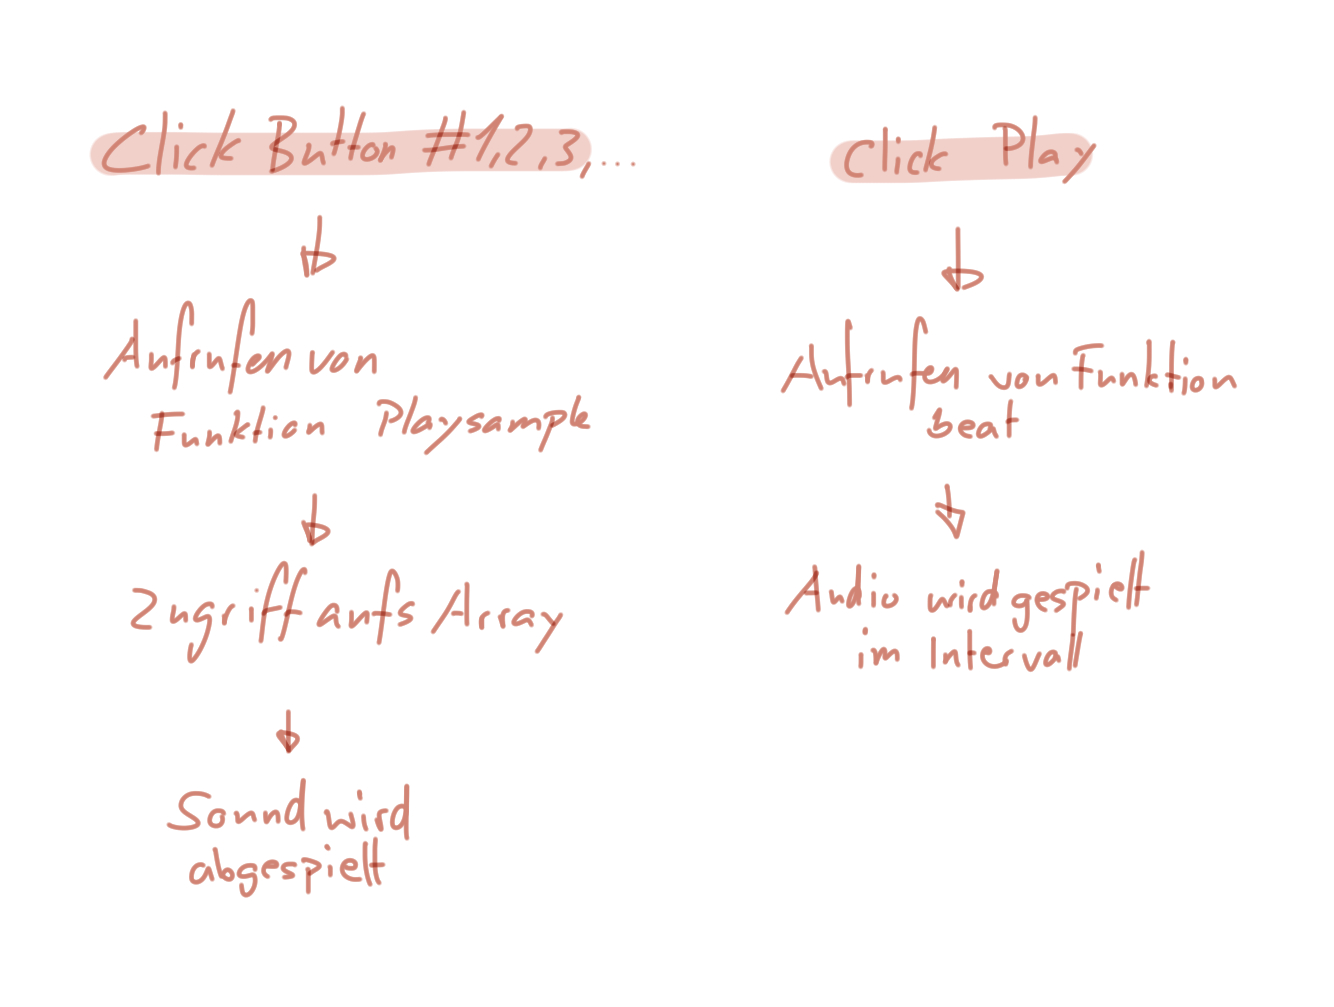 Click Button #1,2,3,...
Aufrufen von
Funktion Playsample
Zugriff aufs Array
Sound wird
abgespielt
Click Play
Aufrufen von Funktion
beat
Audio wird gespielt
im Intervall